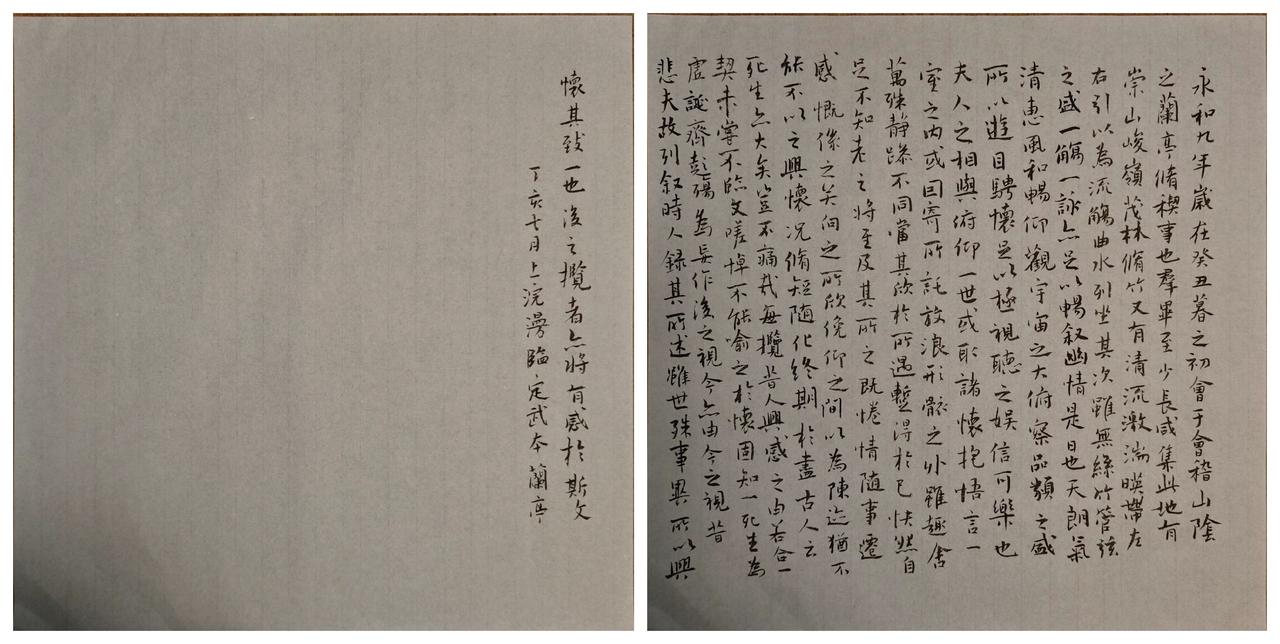 永和九年歲在癸丑暮之初會于會稽山陰
之蘭亭脩稧事也羣畢至少長咸集此地有
崇山峻嶺茂林脩竹又有清流激湍暎帶左
右引以為流觴曲水列坐其次雖無絲竹管弦
之盛一觴一詠亦足以暢叙幽情是日也天朗氣
清惠風和暢仰觀宇宙之大俯察品類之盛
所以遊目騁懷足以極視聽之娛信可樂也
夫人之相與俯仰一世或取諸懷抱悟言一
室之內或因寄所託放浪形骸之外雖趣舍
萬殊靜躁不同當其欣於所遇蹔得於己怏然自
足不知老之將至及其所之既惓情隨事遷
感慨係之矣向之所欣俛仰之間以為陳迹猶不
能不以之興懷况脩短隨化終期於盡古人云
死生亦大矣豈不痛哉每攬昔人興感之由若合一
契未嘗不臨文嗟悼不能喻之於懷固知一死生為
虛誕齊彭殤為妄作後之視今亦由今之視昔
悲夫故列叙時人録其所述雖世殊事異所以興
懷其致一也後之攬者亦將有感於斯文
丁亥七月上浣漫臨定武本蘭亭